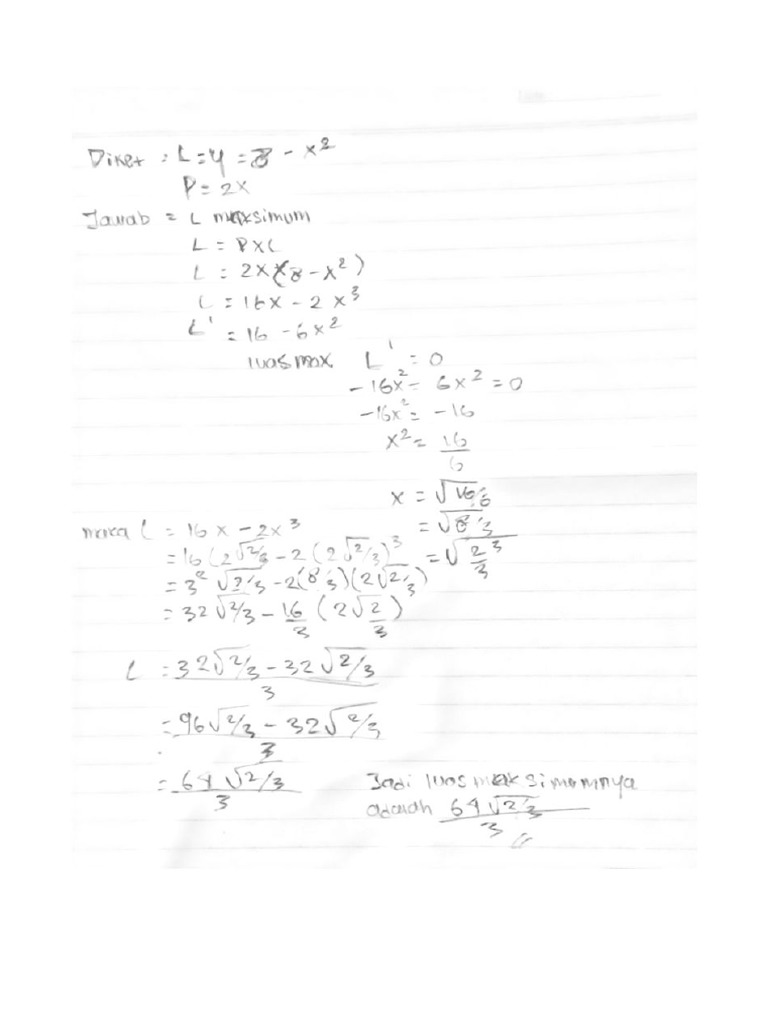 Diket : L = y = 8 - x²
P = 2x
Jawab = L maksimum
L = P x L
L = 2x x (8 - x²)
L = 16x - 2x³
L' = 16 - 6x²
luas max L' = 0
-16x² - 6x² = 0
-16x² = -16
x² = 16/6
x = √16/6
= √8/3
= √2³/3
maka L = 16x - 2x³
= 16 (2√2/3 - 2 (2√2/3)³
= 3² √2/3 - 2(8/3)(2√2/3)
= 32√2/3 - 16/3 (2√2/3)
L = 32√2/3 - 32√2/3 / 3
= 96√2/3 - 32√2/3 / 3
= 64√2/3 / 3
Jadi luas maksimumnya
adalah 64√2/3 / 3